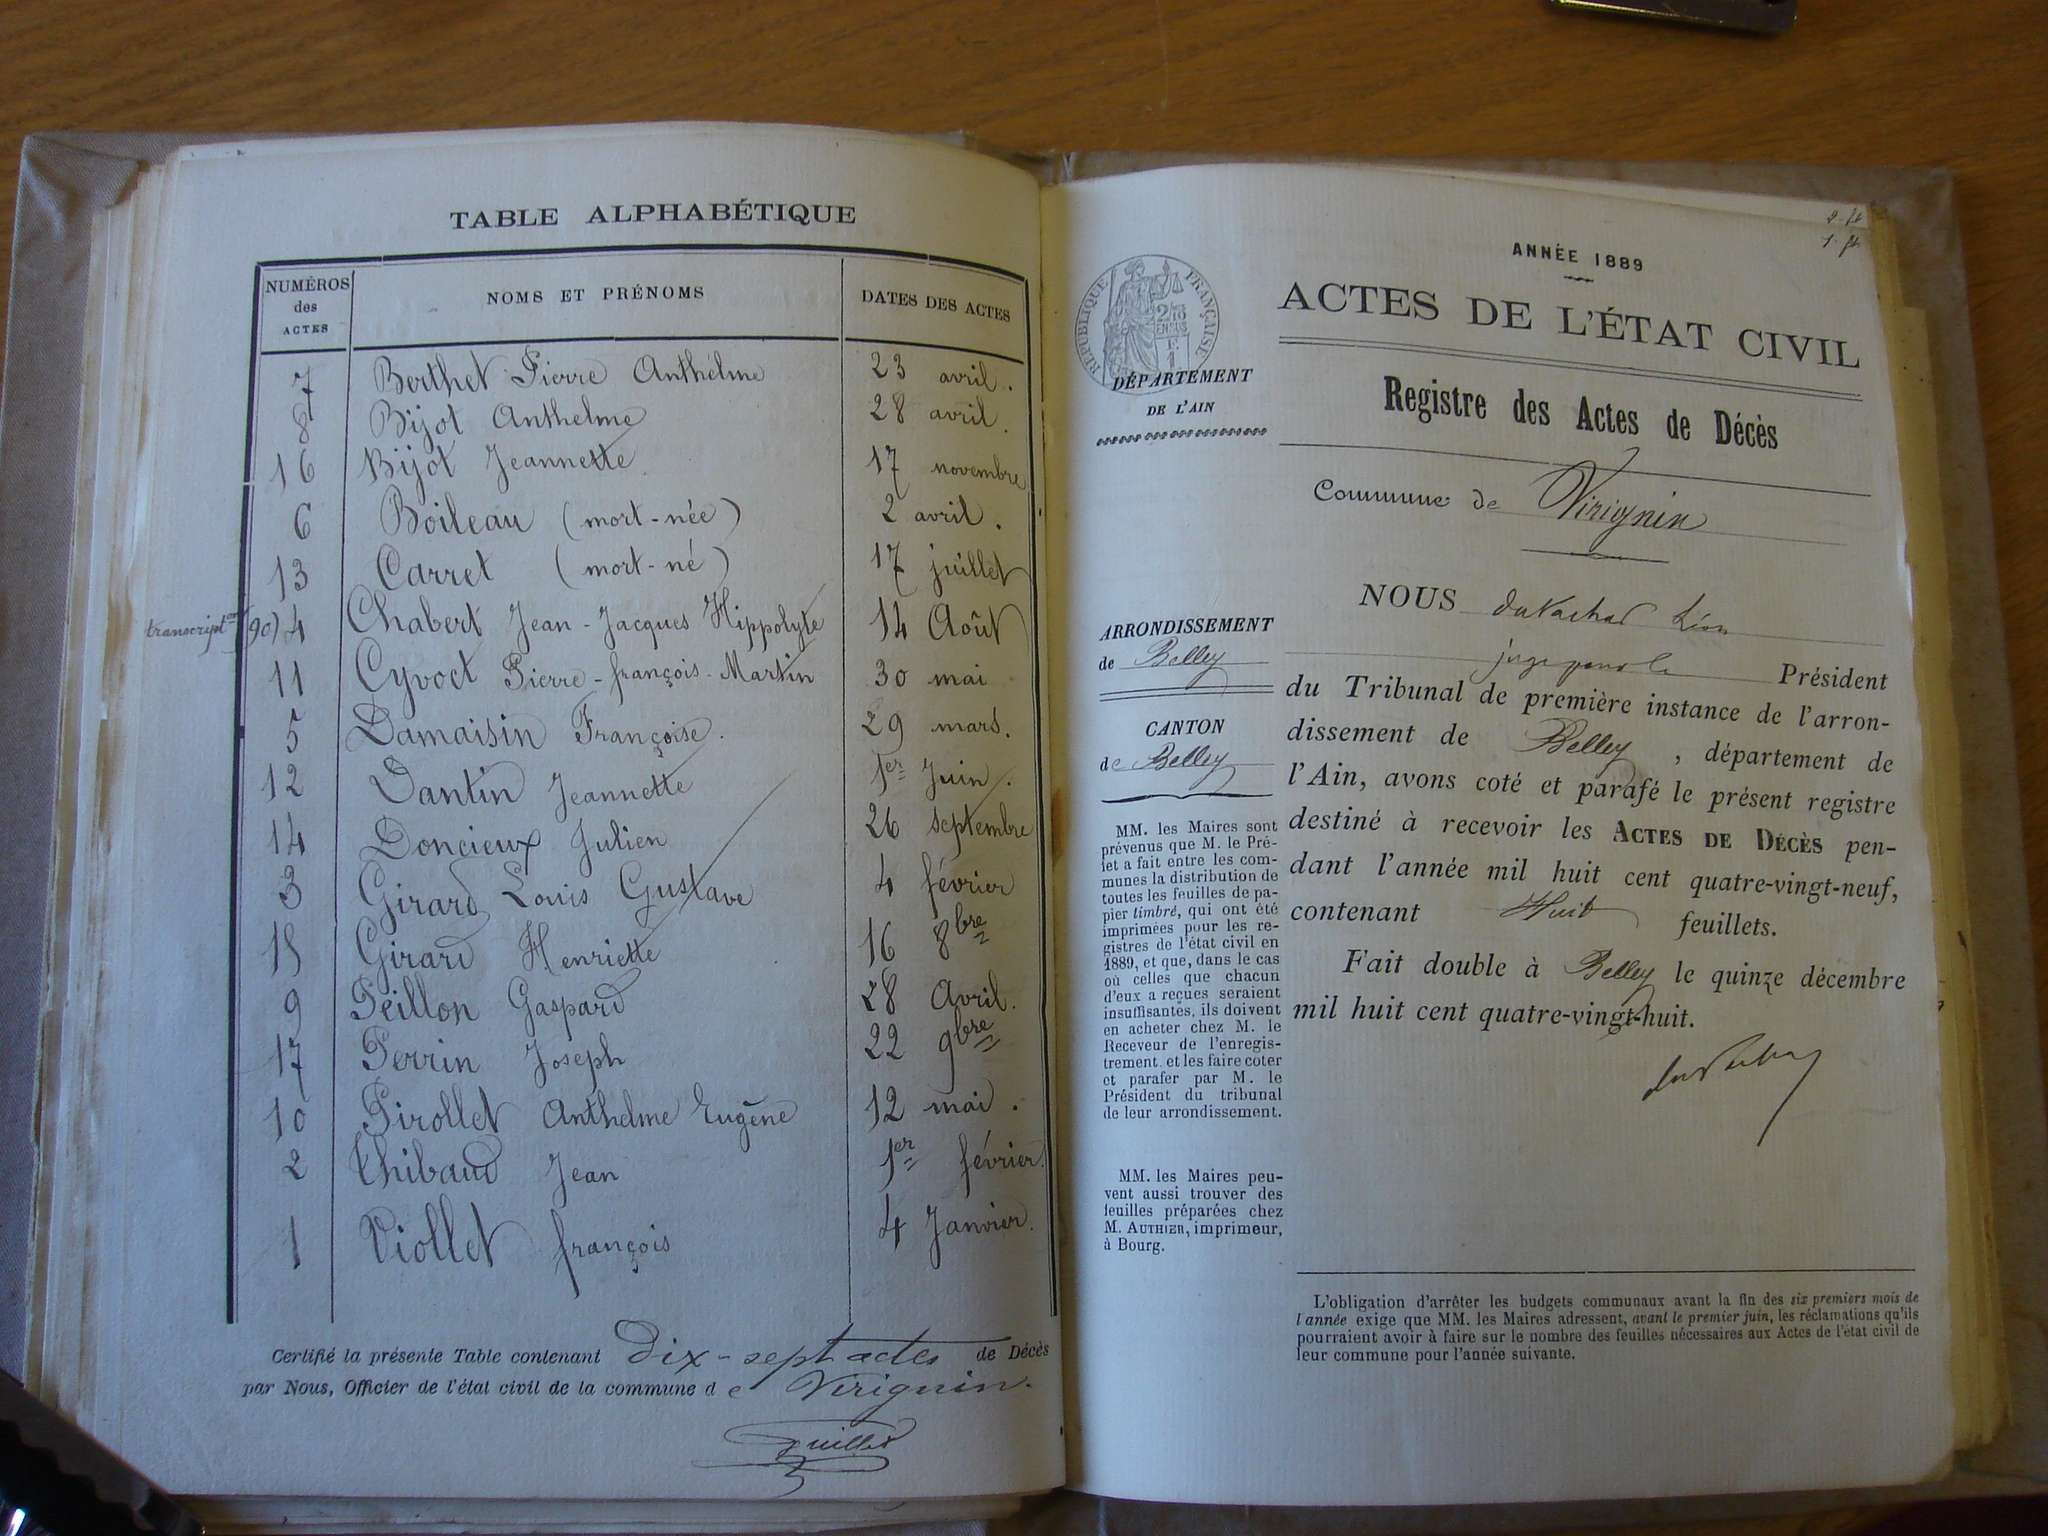 TABLE ALPHABÉTIQUE
NUMÉROS des ACTES NOMS ET PRÉNOMS DATES DES ACTES
7 Berthet Pierre Anthélme 23 avril.
8 Bijot Anthelme 28 avril.
16 Bijot Jeannette 17 novembre
6 Boileau (mort-née) 2 avril.
13 Carret (mort-né) 17 juillet
transcript^on (90) 4 Chabert Jean-Jacques Hippolyte 14 Août
11 Cyvoct Pierre-françois-Martin 30 mai
5 Damaisin Françoise. 29 mars.
12 Dantin Jeannette 1er Juin.
14 Doncieux Julien 26 septembre
3 Girard Louis Gustave 4 février
15 Girard Henriette 16 8bre
9 Peillon Gaspard 28 Avril.
17 Perrin Joseph 22 9bre
10 Pirollet Anthelme Eugène 12 mai.
2 Thibaud Jean 1er février.
1 Viollet françois 4 Janvier.
Certifié la présente Table contenant dix-sept actes de Décès
par Nous, Officier de l'état civil de la commune de Virignin.
ANNÉE 1889
ACTES DE L'ÉTAT CIVIL
RÉPUBLIQUE FRANÇAISE
DÉPARTEMENT
DE L'AIN
Registre des Actes de Décès
Commune de Virignin
ARRONDISSEMENT
de Belley
CANTON
de Belley
MM. les Maires sont
prévenus que M. le Pré-
fet a fait entre les com-
munes la distribution de
toutes les feuilles de pa-
pier timbré, qui ont été
imprimées pour les re-
gistres de l'état civil en
1889, et que, dans le cas
où celles que chacun
d'eux a reçues seraient
insuffisantes, ils doivent
en acheter chez M. le
Receveur de l'enregis-
trement et les faire coter
et parafer par M. le
Président du tribunal
de leur arrondissement.
MM. les Maires peu-
vent aussi trouver des
feuilles préparées chez
M. AUTHIER, imprimeur,
à Bourg.
NOUS Léon
juge pour le Président
du Tribunal de première instance de l'arron-
dissement de Belley, département de
l'Ain, avons coté et parafé le présent registre
destiné à recevoir les ACTES DE DÉCÈS pen-
dant l'année mil huit cent quatre-vingt-neuf,
contenant Huit feuillets.
Fait double à Belley le quinze décembre
mil huit cent quatre-vingt-huit.
L'obligation d'arrêter les budgets communaux avant la fin des six premiers mois de
l'année exige que MM. les Maires adressent, avant le premier juin, les réclamations qu'ils
pourraient avoir à faire sur le nombre des feuilles nécessaires aux Actes de l'état civil de
leur commune pour l'année suivante.